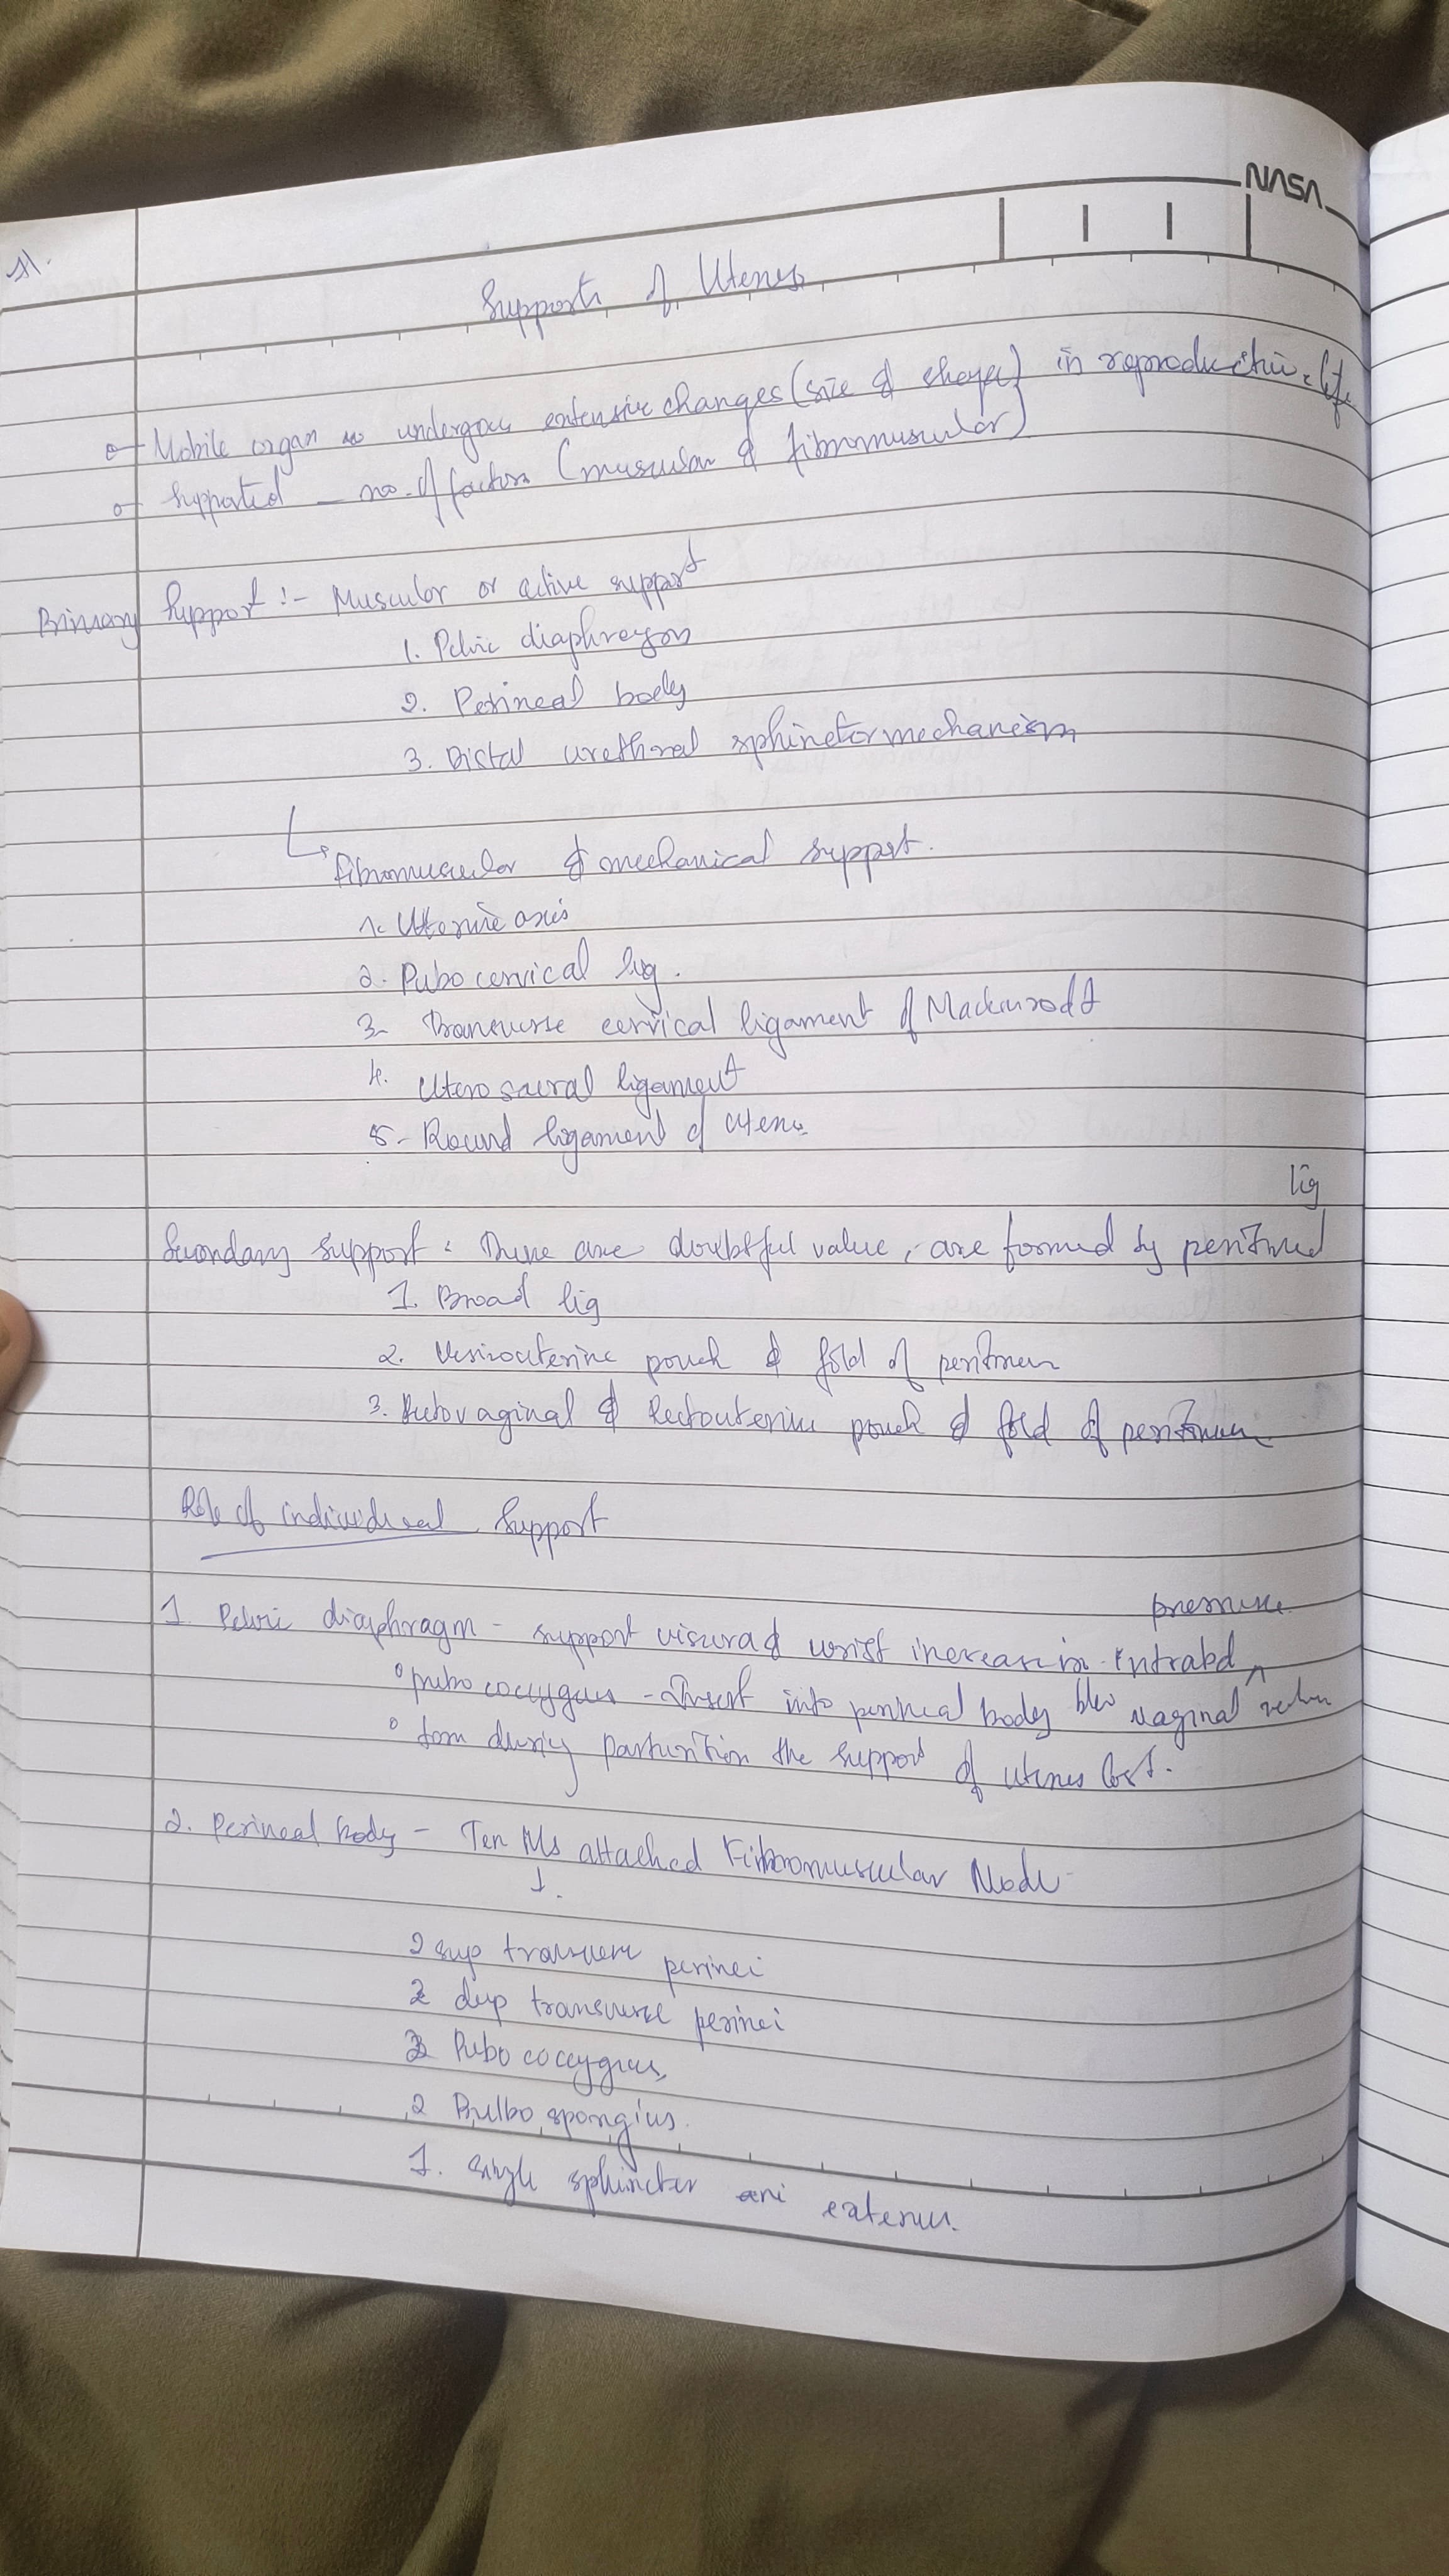 NASA
Supports of Uterus
Mobile organ as undergoes extensive changes (size & shape) in reproductive life
Supported - no. of factors (muscular & fibromuscular)
Primary Support :- Muscular or active support
1. Pelvic diaphragm
2. Perineal body
3. Distal urethral sphincter mechanism
Fibromuscular & mechanical support.
1. Uterine axis
2. Pubo cervical lig.
3. Transverse cervical ligament of Mackenrodt
4. Utero sacral ligament
5. Round ligament of uterus
lig
Secondary support : These are doubtful value, are formed by peritoneal
1. Broad lig
2. Vesicouterine pouch & fold of peritoneum
3. Rectovaginal & Rectouterine pouch & fold of peritoneum
Role of individual support
pressure
1. Pelvic diaphragm - support viscera & resist increase in intrabd
pubo coccygeus - Insert into perineal body b/w vaginal rectum
torn during parturition the support of uterus lost.
2. Perineal body - Ten Ms attached Fibromuscular Node
2 sup transverse perinei
2 deep transverse perinei
Pubo coccygeus
2 Bulbo spongius.
1. single sphincter ani externus.